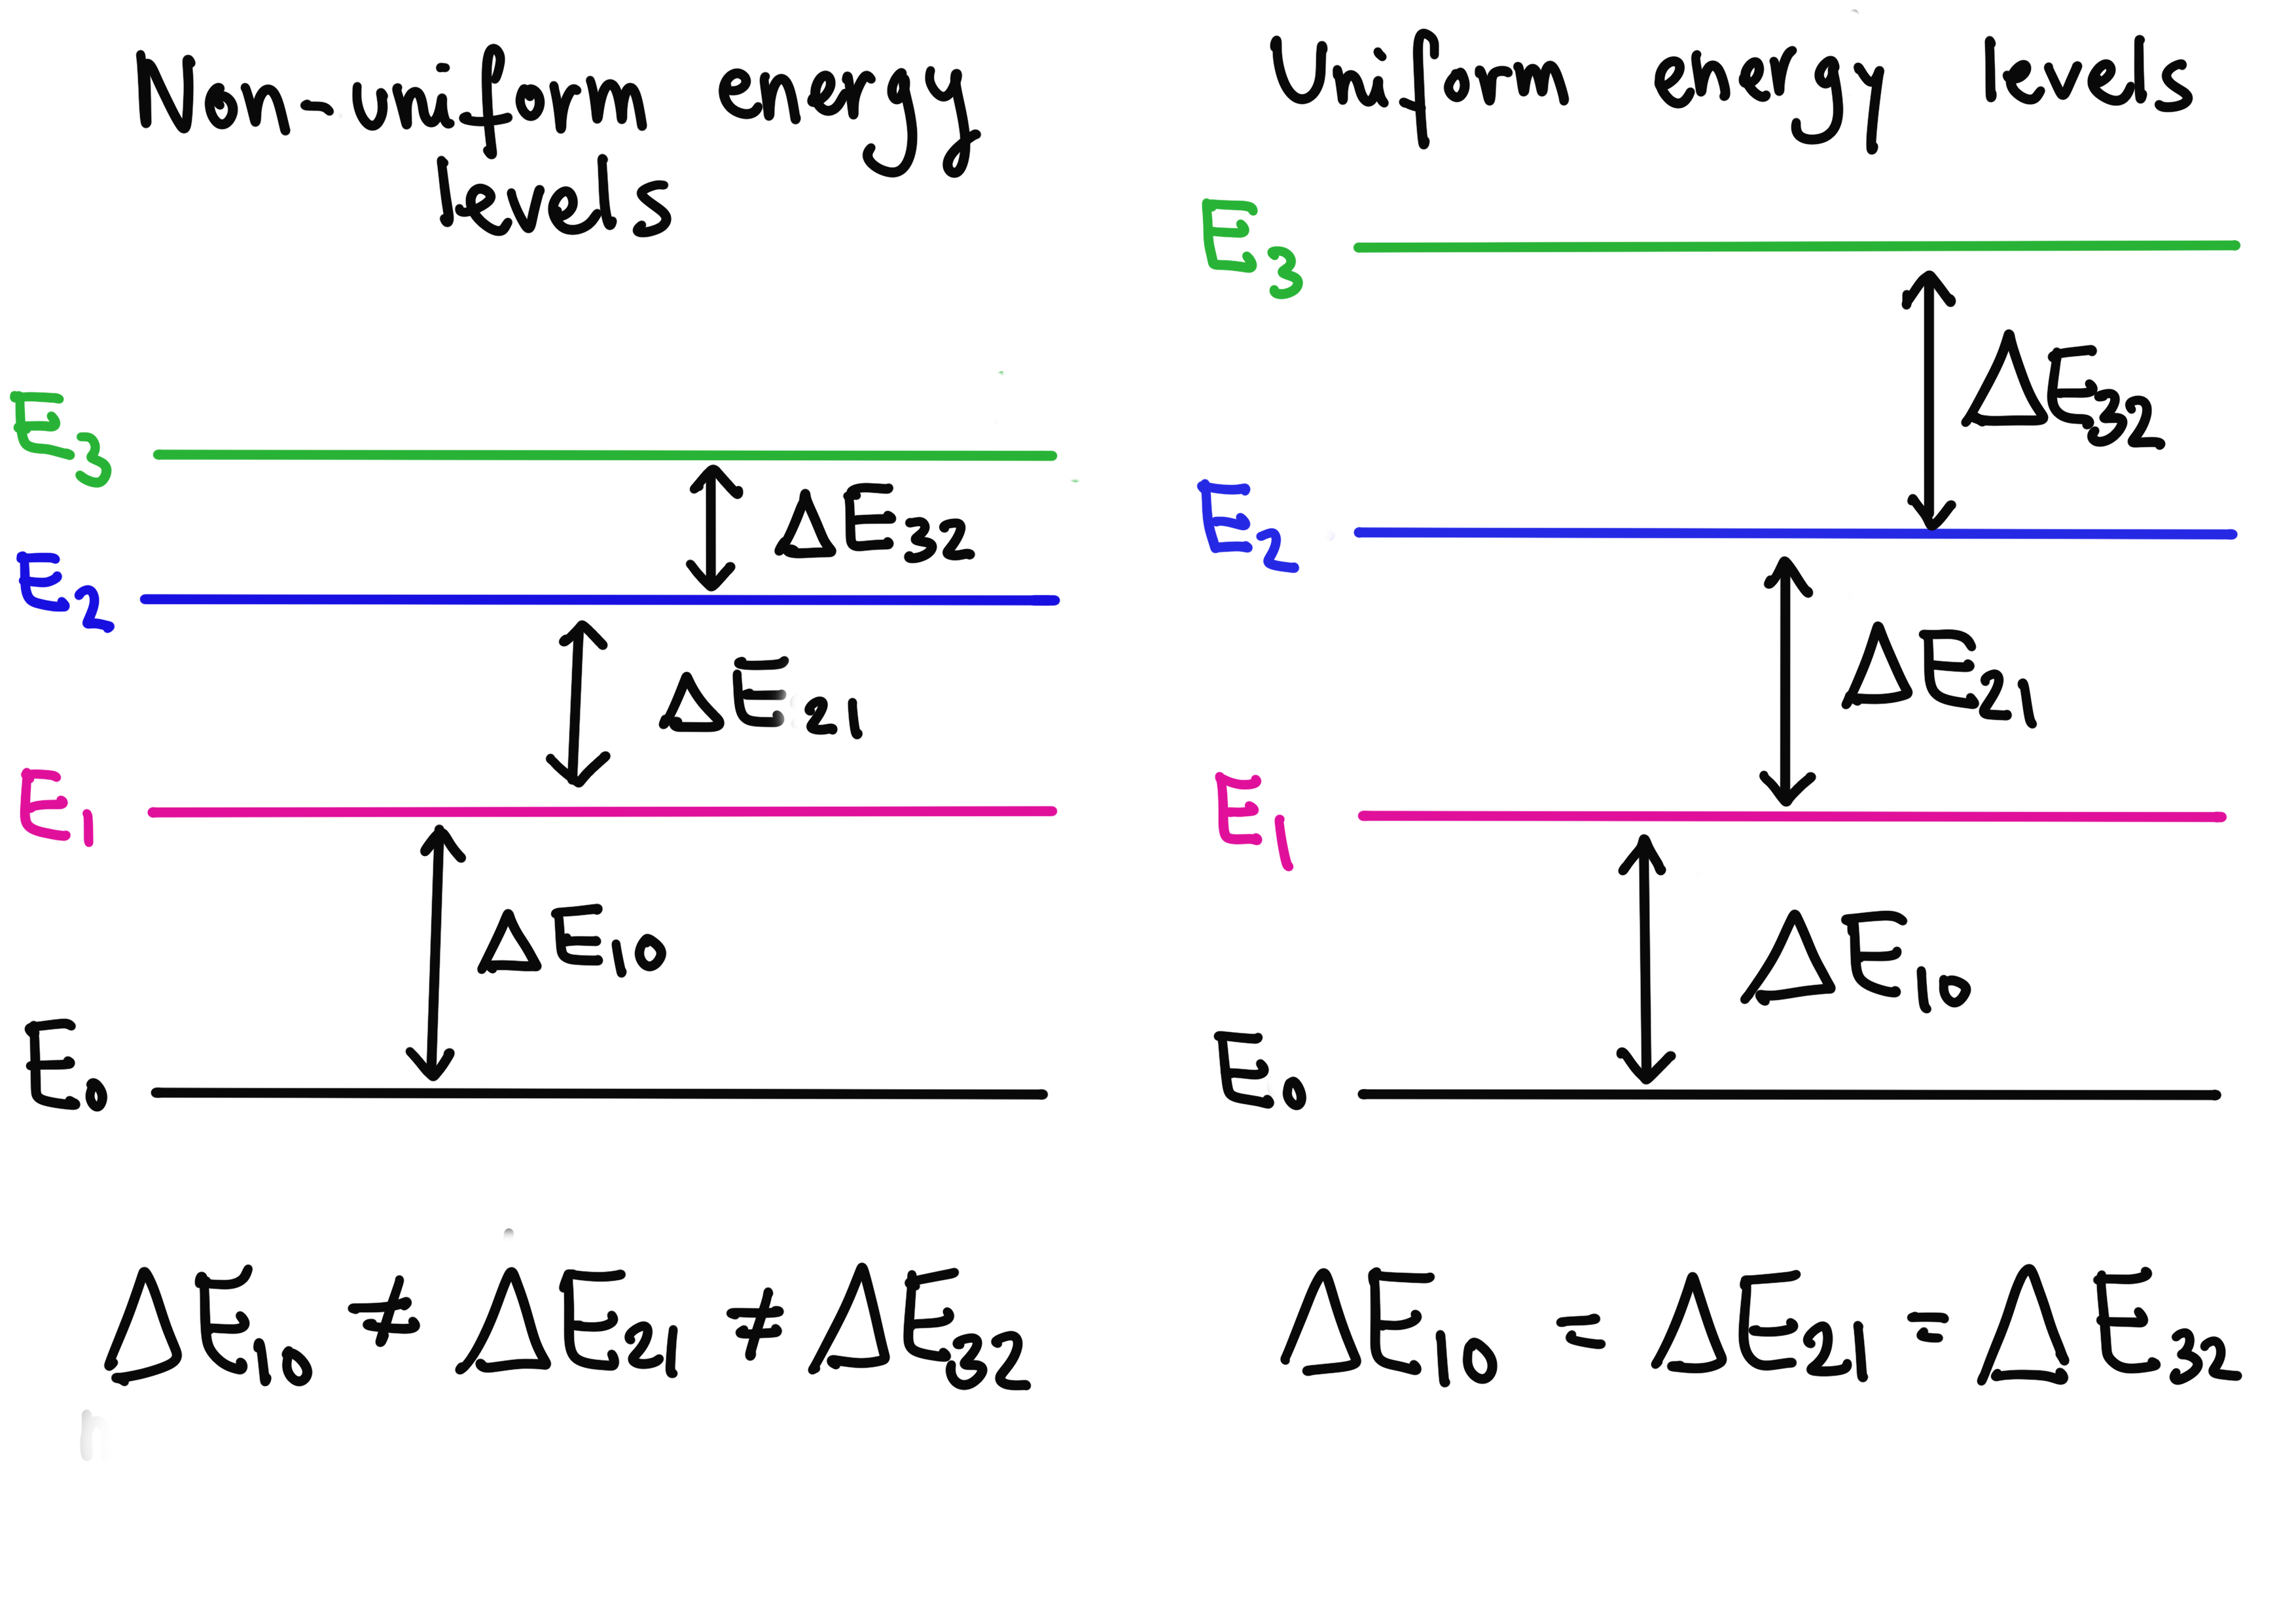 Non-uniform energy
levels
E₃
ΔE₃₂
E₂
ΔE₂₁
E₁
ΔE₁₀
E₀
ΔE₁₀ ≠ ΔE₂₁ ≠ ΔE₃₂
Uniform energy levels
E₃
ΔE₃₂
E₂
ΔE₂₁
E₁
ΔE₁₀
E₀
ΔE₁₀ = ΔE₂₁ = ΔE₃₂